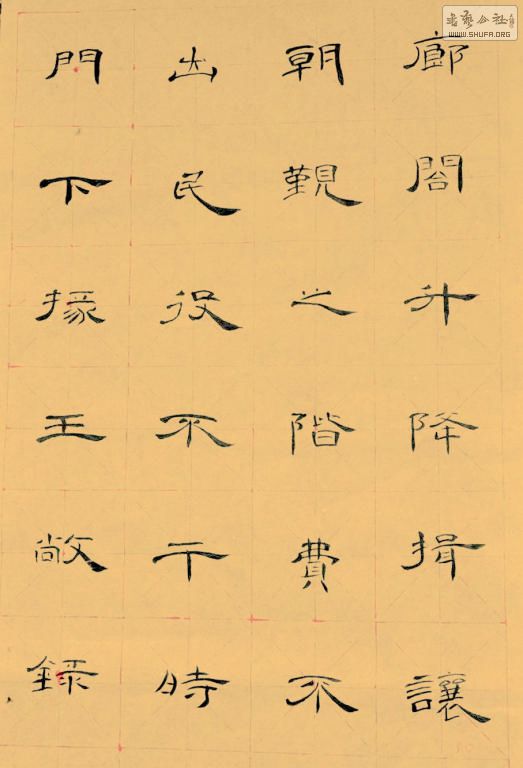 廊閤升降揖讓
朝覲之階費不
出民役不干時
門下掾王敞錄
書藝公社
WWW.SHUFA.ORG